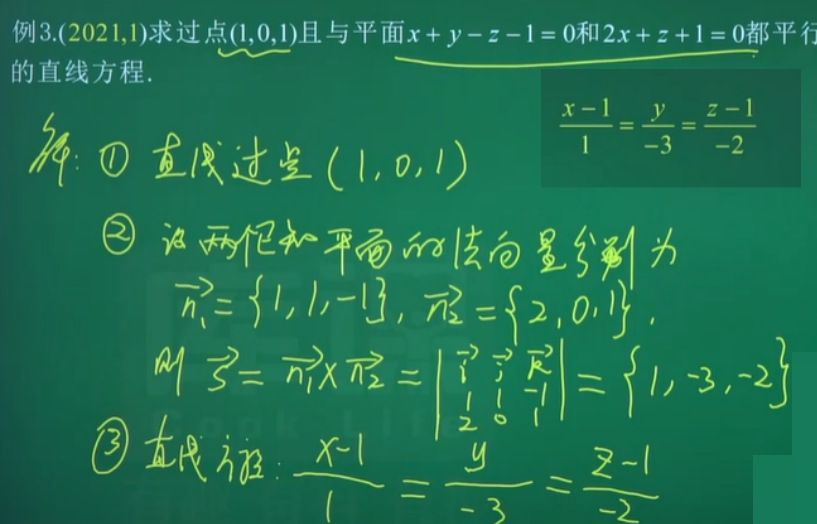 例3.(2021,1)求过点(1,0,1)且与平面x + y − z − 1 = 0和2x + z + 1 = 0都平行
的直线方程.
\frac{x-1}{1} = \frac{y}{-3} = \frac{z-1}{-2}
解: ① 直线过点 (1,0,1)
② 设两个已知平面的法向量分别为
\vec{n_1} = {1,1,-1}, \vec{n_2} = {2,0,1},
则 \vec{s} = \vec{n_1} × \vec{n_2} = \begin{vmatrix} \vec{i} & \vec{j} & \vec{k} \\ 1 & 1 & -1 \\ 2 & 0 & 1 \end{vmatrix} = {1,-3,-2}
③ 直线方程: \frac{x-1}{1} = \frac{y}{-3} = \frac{z-1}{-2}